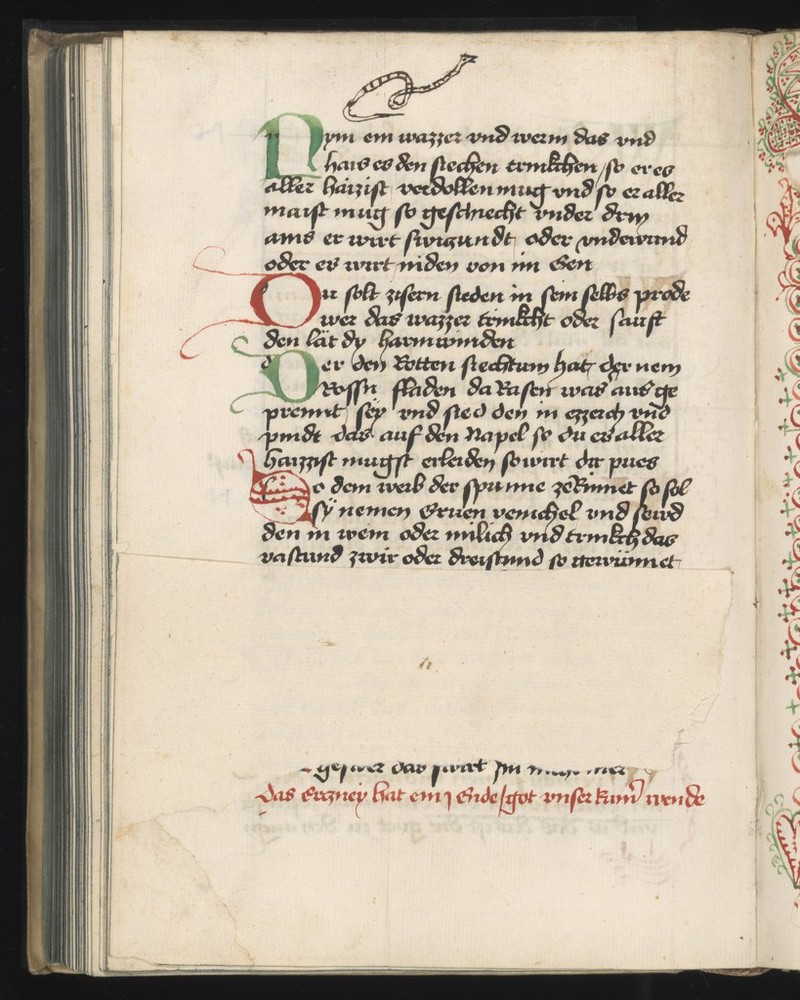 Nym ein wazzer vnd werm das vnd
hais es den siechen trinkchen / so er es
aller haizist verdollen mug vnd so er aller
maist mug so geschiecht vnder drin
ains er wirt swizundt oder vndewund
oder es wirt niden von im Gen
Du solt zisern sieden in sein selbs prode
wer das wazzer trinkcht oder sauft
den lät dy harmwinden
Der den Rotten siechtum hat der nem
Rossn fladen da Rasen was aus ge
prennt sey vnd sied den in ezzeich vnd
pindt das auf den Napel so du es aller
haizzist mugst erleiden so wirt dir pues
So dem weib der spunne zeRinnet so sol
sy nemen Gruen venichel vnd seud
den in wein oder milich vnd trinkch das
vastund zwir oder dreistund so gewinnet
geswer das wirt Im
das Erczney hat ein Ende / got vnser kum̄ wende